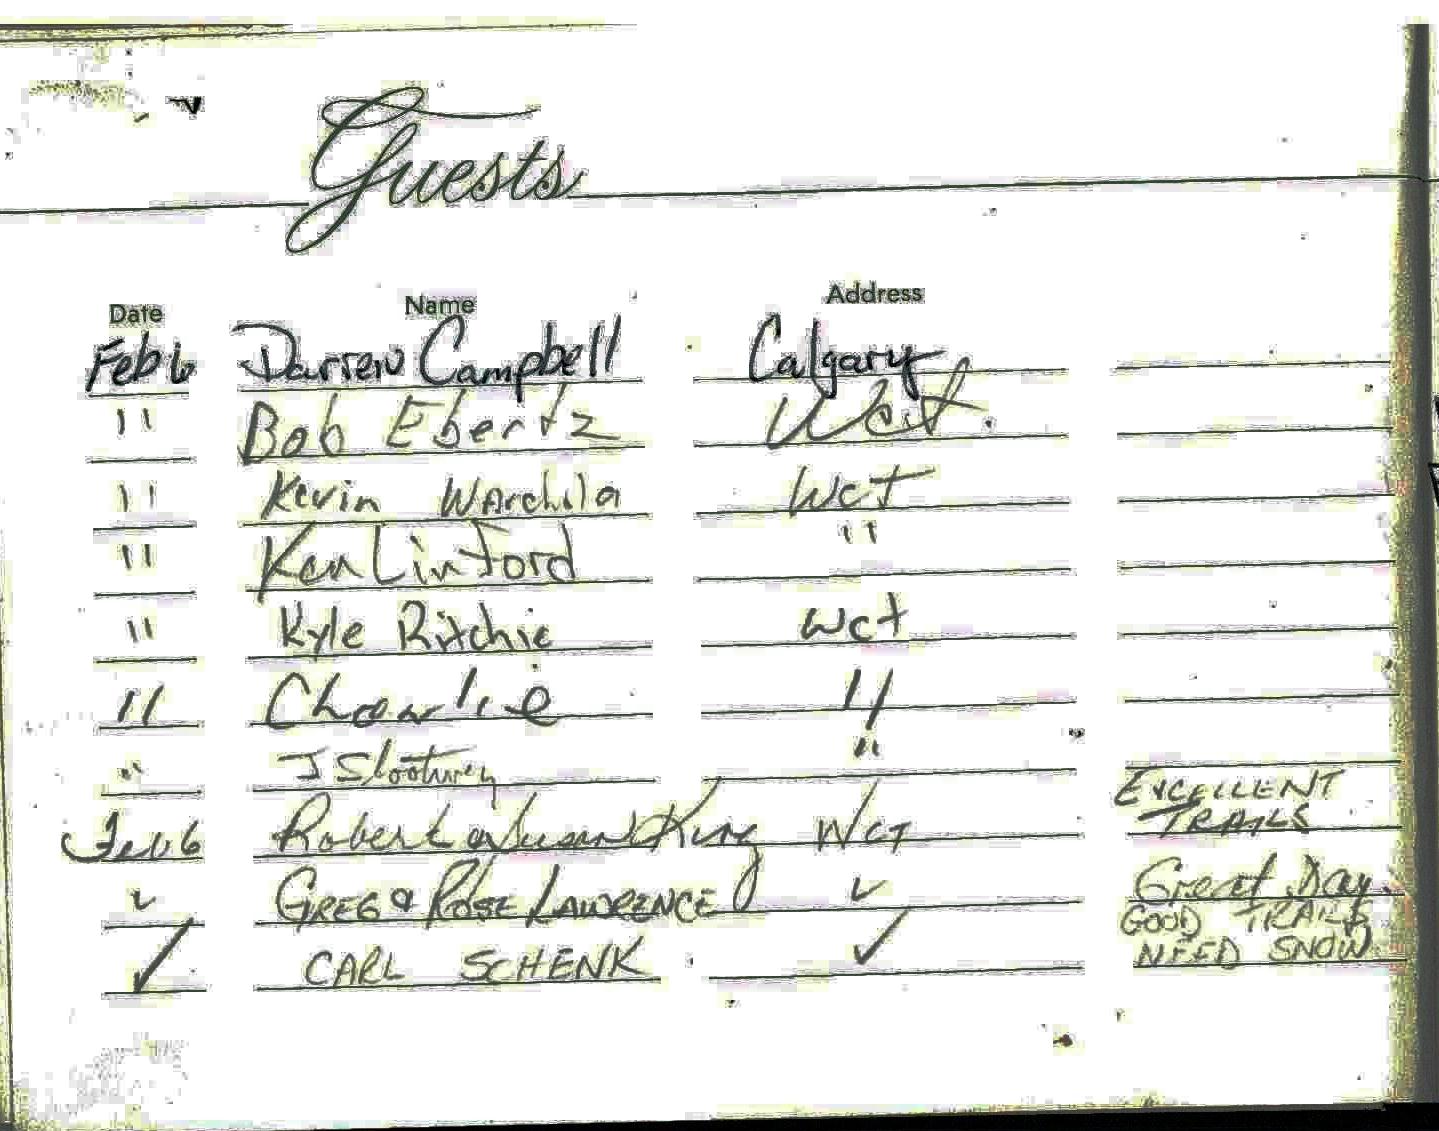 Guests
Date Name Address
Feb 6 Darren Campbell Calgary
" Bob Ebertz Wct.
" Kevin Warchola WCT
" Ken Linford "
" Kyle Ritchie Wct
" Charlie "
" J "
Feb 6 Robert & Susan King WCT EXCELLENT
TRAILS
✓ GREG & ROSE LAWRENCE ✓ Great Day.
✓ CARL SCHENK ✓ GOOD TRAILS
NEED SNOW